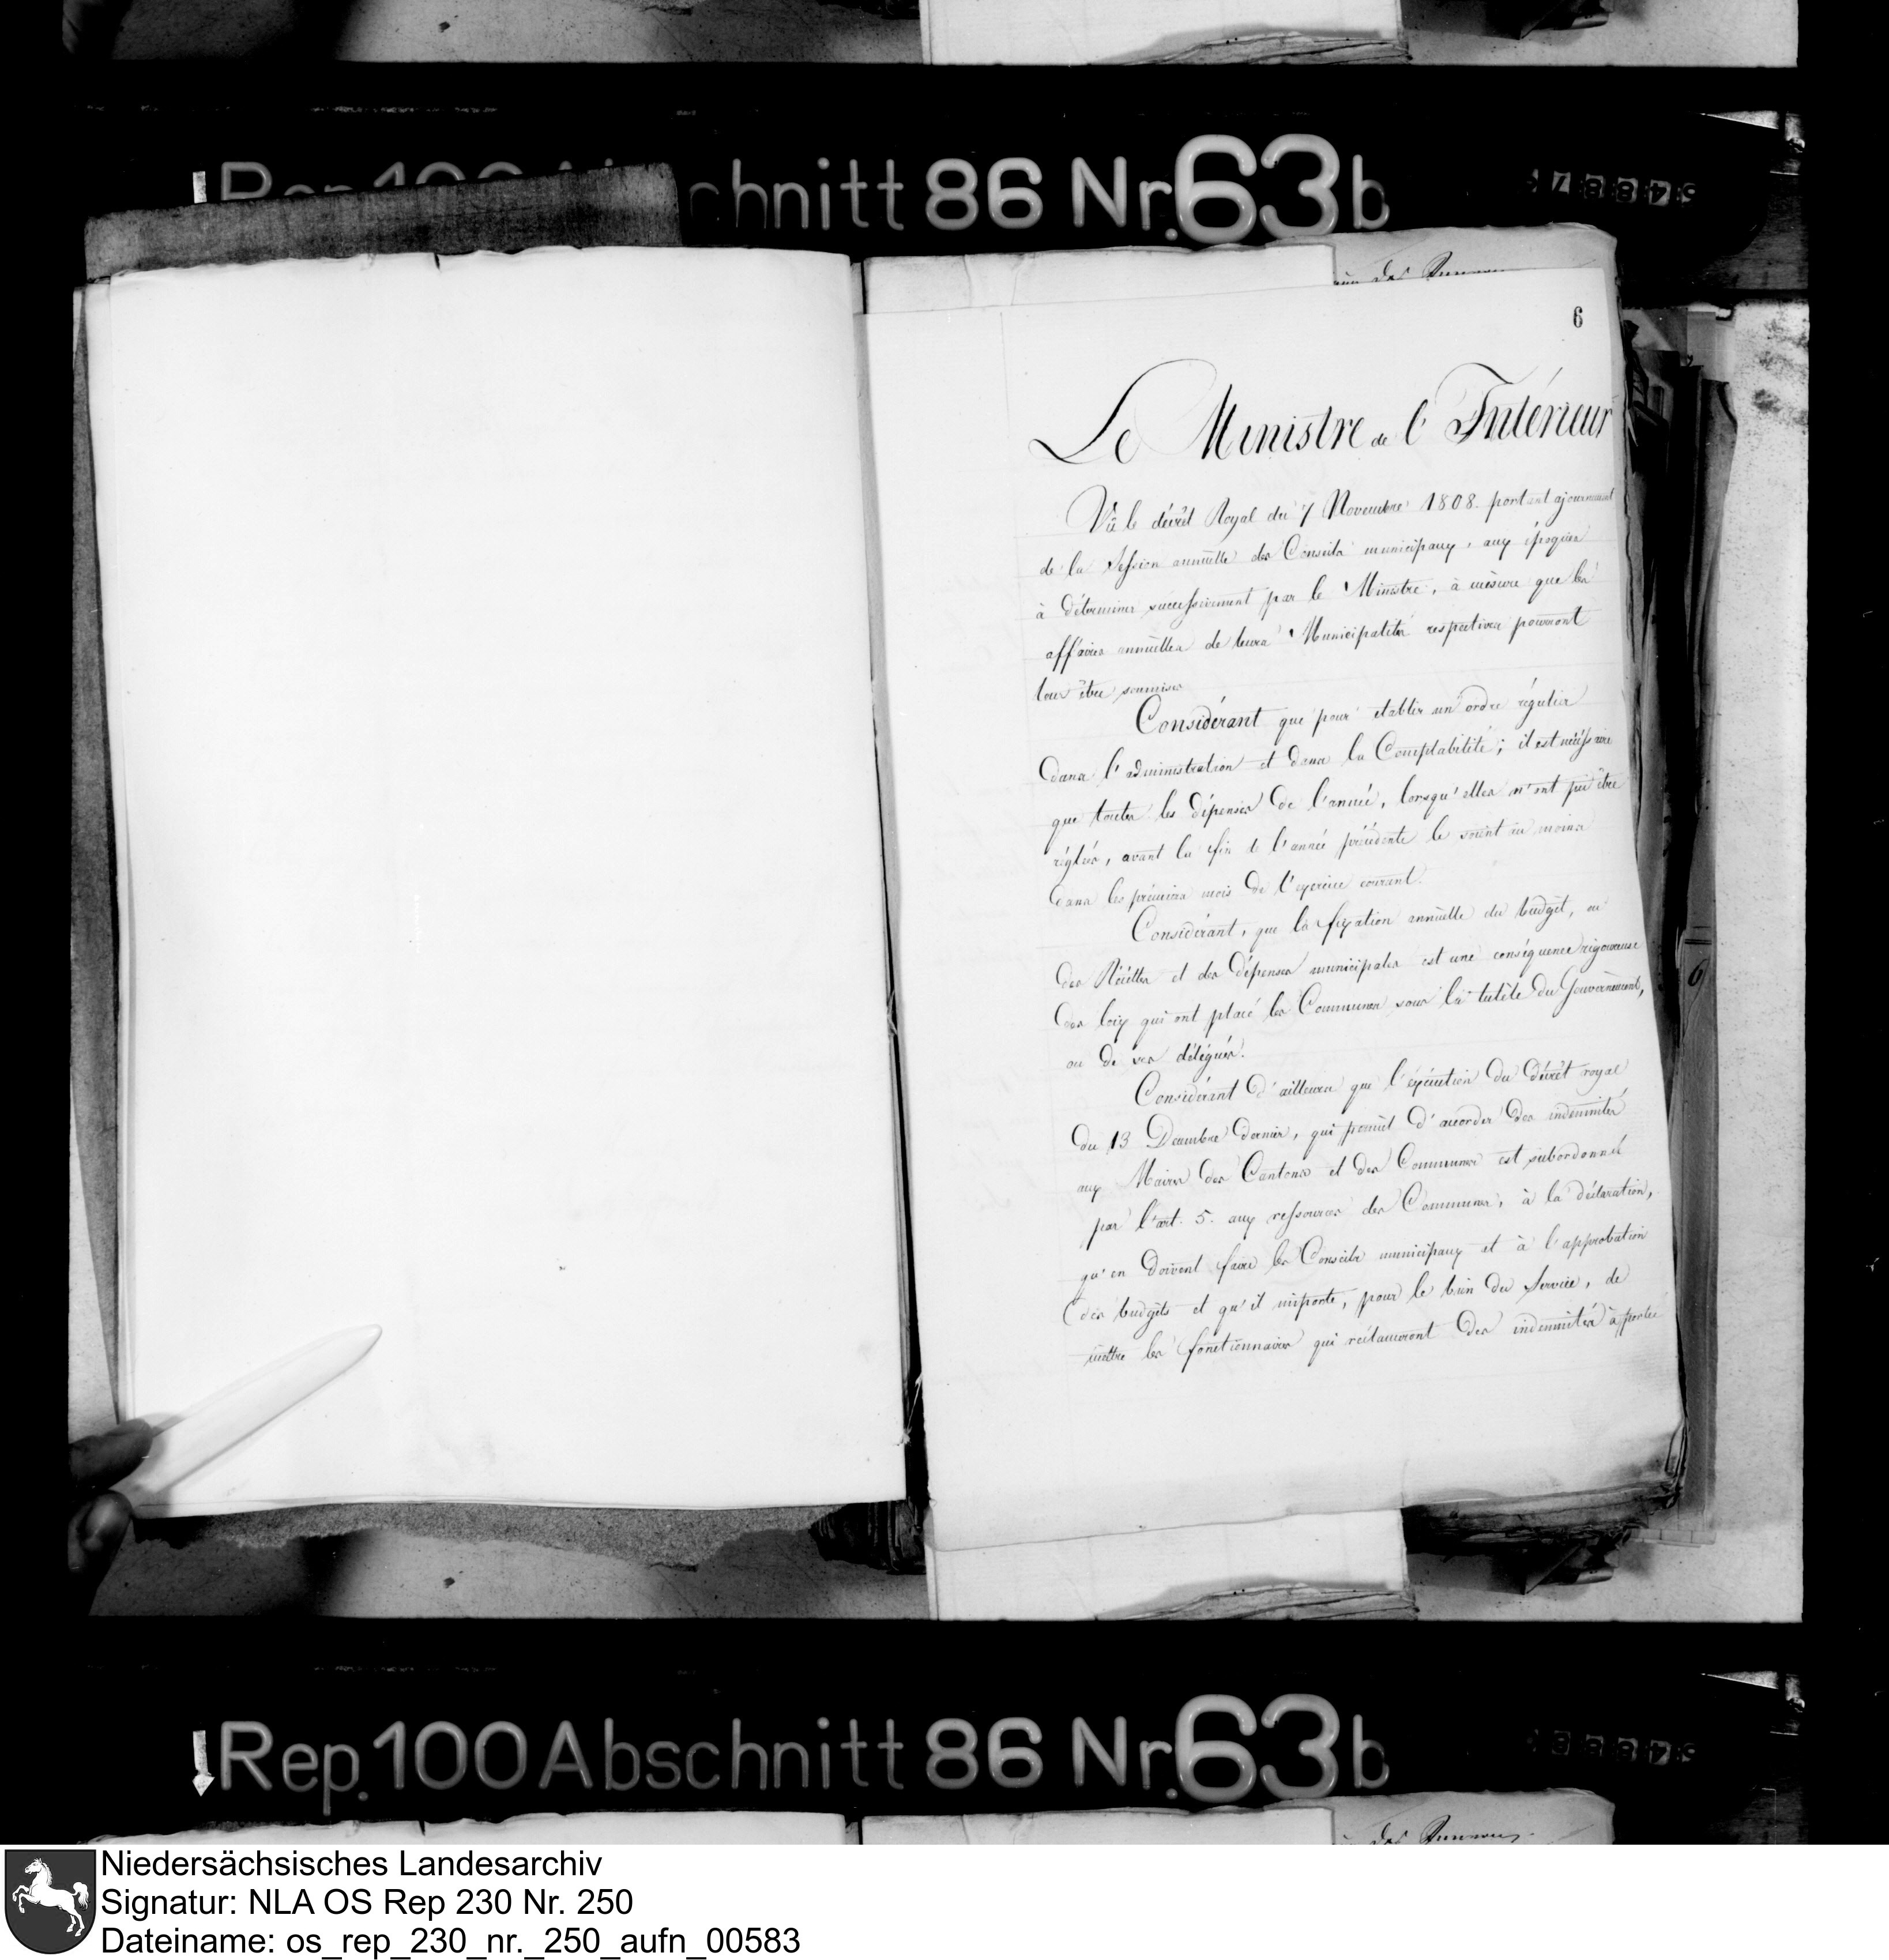 chnitt 86 Nr. 63 b
6
Le Ministre de l'Intérieur
Vû le décrèt Royal du 7 Novembre 1808. portant ajournement
de la Session annuelle des Conseils municipaux, aux époques
à déterminer successivement par le Ministre, à mèsure que les
affaires annuelles de leurs Municipalités respectives pourront
leur être soumises
Considérant que pour etablir un ordre régulier
dans l'administration et dans la Comptabilité; il est nécessaire
que toutes les dépenses de l'année, lorsqu'elles n'ont pu être
réglées, avant la fin de l'année précédente le soient au moins
dans les prémiers mois de l'exercice courant.
Considérant, que la fixation annuelle du budgèt, ou
des Récettes et des dépenses municipales est une conséquence rigoureuse
des loix qui ont placé les Communes sous la tutèle du Gouvernèment,
ou de ses délégués.
Considérant d'ailleurs que l'éxécution du décrèt royal
du 13 Decembre dernier, qui permèt d'accorder des indemnités
aux Maires des Cantons et des Communes est subordonné
par l'art. 5. aux ressources des Communes, à la déclaration,
qu'en doivent faire les Conseils municipaux et à l'approbation
des budgèts et qu'il importe, pour le bien du Service, de
mettre les fonctionnaires qui réclameront des indemnités à portée
6
Rep. 100 Abschnitt 86 Nr. 63 b
Niedersächsisches Landesarchiv
Signatur: NLA OS Rep 230 Nr. 250
Dateiname: os_rep_230_nr._250_aufn_00583